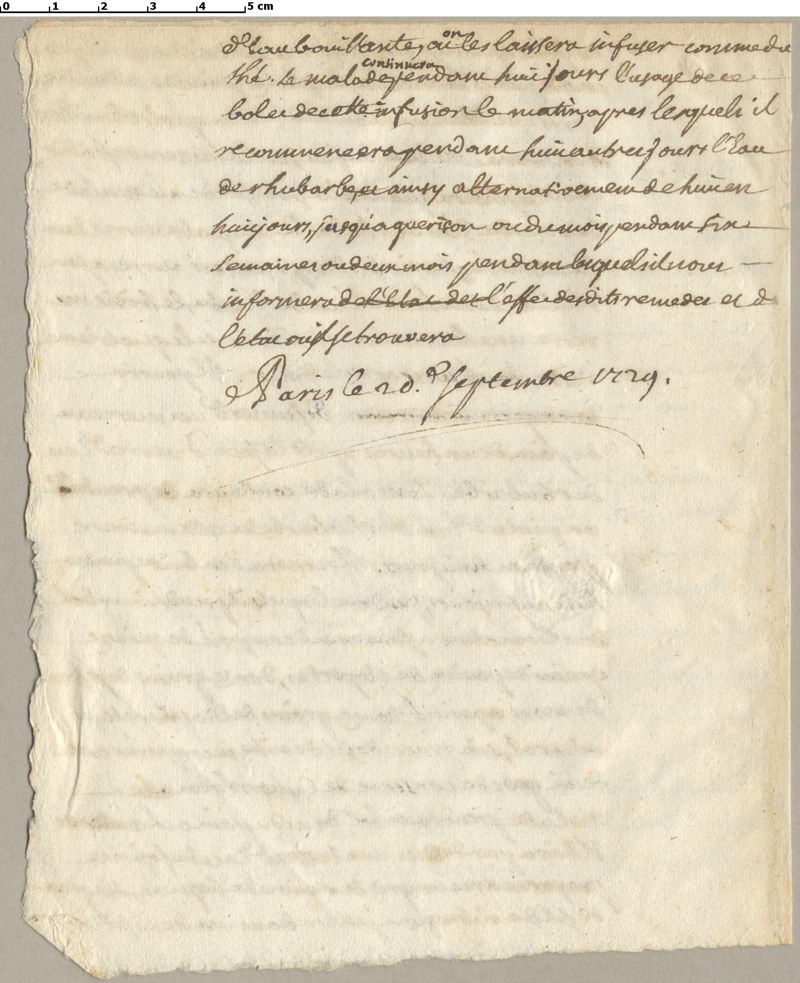 0 1 2 3 4 5 cm
d'Eau bouillante, ou on les laissera infuser comme du
thé. Le malade continuera pendant huit jours l'usage de ce
bol et de cette infusion le matin, apres lesquels il
recommencera pendant huit autres jours l'Eau
de rhubarbe, et ainsy alternativement de huit en
huit jours, jusqu'a guerison ou du mois pendant six
semaines ou deux mois pendant lesquels il nous
informera de l'Etat de l'effet desdits remedes et de
l'état ou il se trouvera
A Paris le 20.e Septembre 1729.